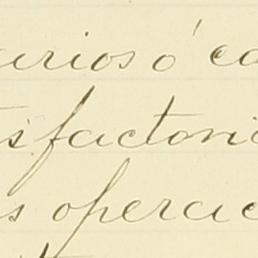 urios ó ca
tisfactoria
s operacio